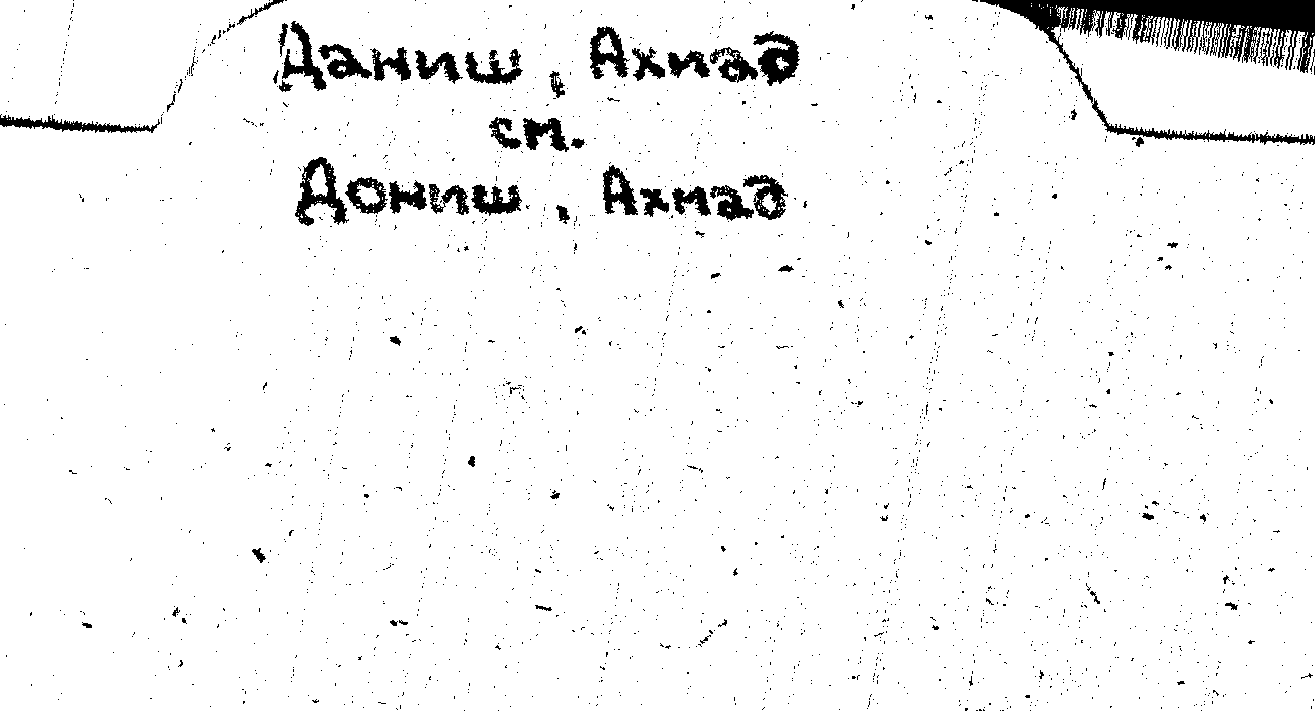 Даниш, Ахмад
см.
Дониш, Ахмад